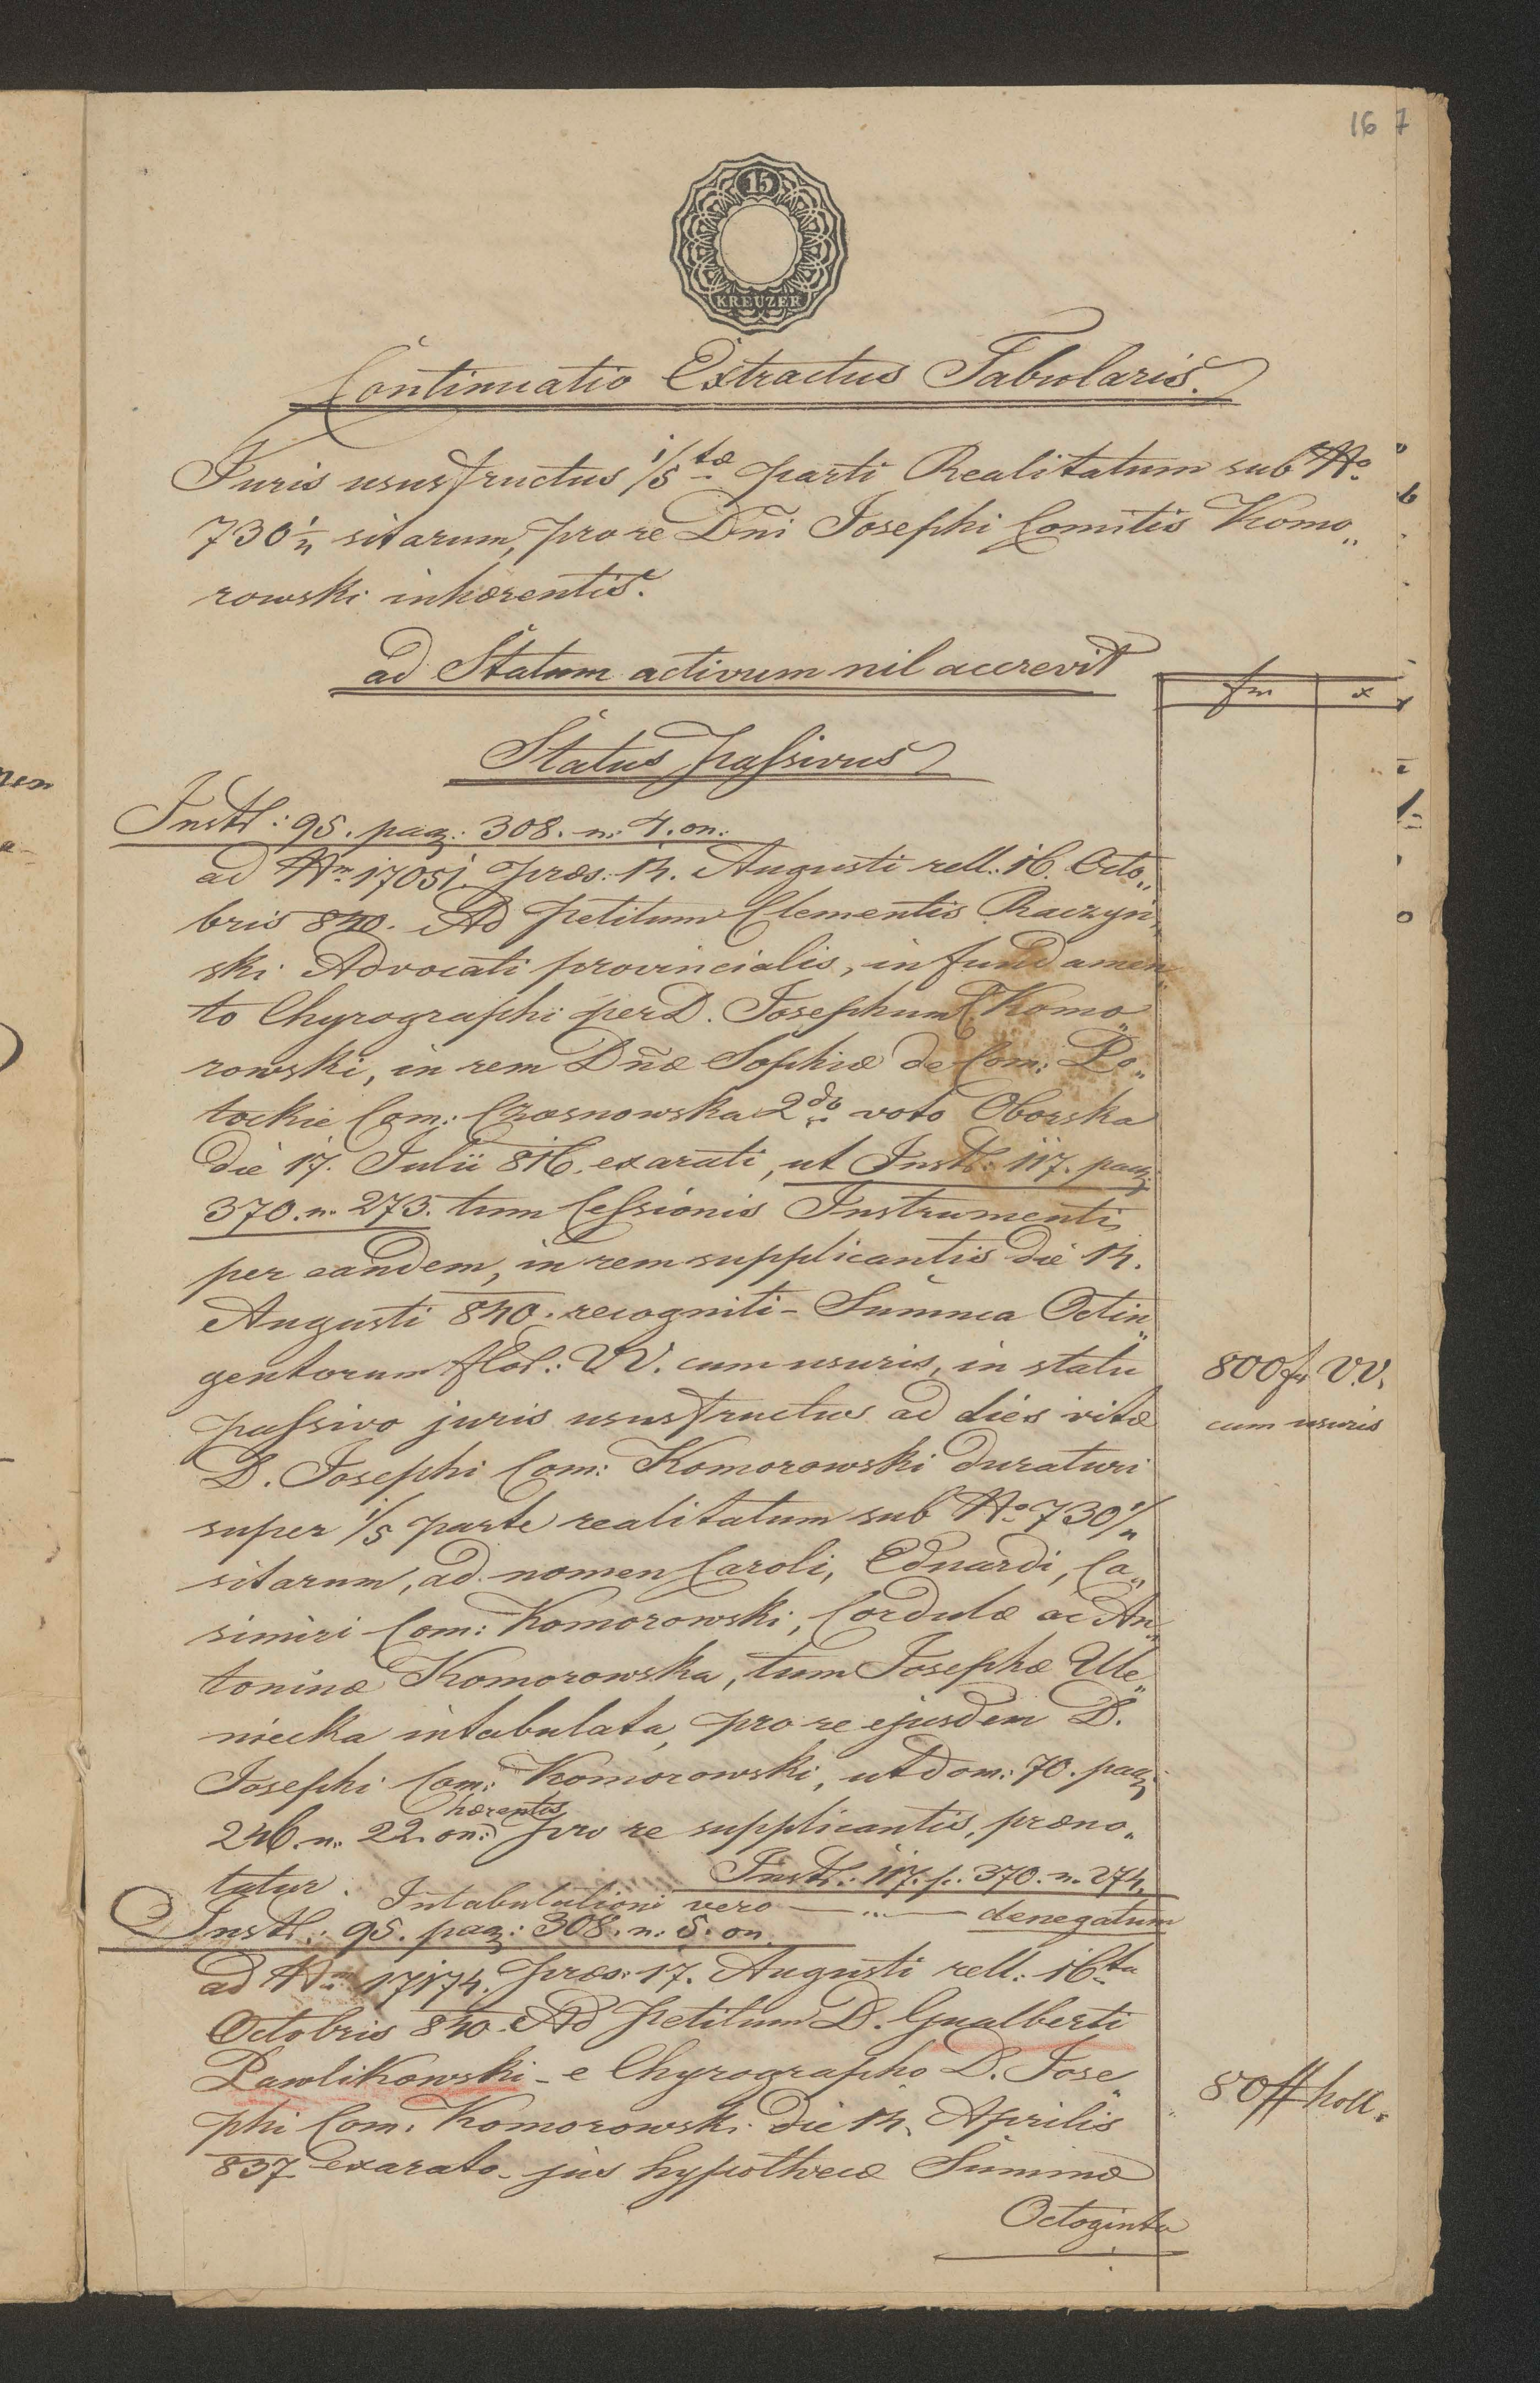 16 7
15
KREUZER
Continuatio Extractus Tabularis.
Juris ususfructus 1/5tæ parti Realitatum sub No
730 1/4 sitarum, pro re Dni Josephi Comitis Komo„
rowski inhærentis.
ad Statum activum nil accrevit
fr x
Status passivus
Instr: 95. pag: 308. n. 4. on.
ad Nm 17051. præs: 14. Augusti rell: 16. Octo„
bris 840. Ad Petitum Clementis Raczyn„
ski Advocati provincialis, in fundamen„
to Chyrographi per D. Josephum C. Komo„
rowski, in rem Dnæ Sophiæ de Com: Po„
tockie Com: Czosnowska 2do voto Oborska
die 17. Julii 816. exarati, ut Instr: 117. pag:
370. n. 273. tum Cessionis Instrumenti
per eandem, in rem supplicantis die 14.
Augusti 840. recogniti - Summa Octin„
gentorum flor: VV. cum usuris, in statu
800 fr V.V.
passivo juris ususfructus ad dies vitæ
cum usuris
D. Josephi Com: Komorowski duraturi
super 1/5 parte realitatum sub No 730 1/4
sitarum, ad nomen Caroli, Eduardi, Ca„
simiri Com: Komorowski, Cordulæ ac An„
toninæ Komorowska, tum Josephæ Ule„
niecka intabulata, pro re ejusdem D.
Josephi Com: Komorowski, ut dom: 70. pag:
246. n. 22. on: hærentis pro re supplicantis, præno„
tatur. Instr: 117. p. 370. n. 274.
Intabulationi vero — „ — denegatum
Instr: 95. pag: 308. n. 5. on.
ad Nm 17174. præs: 17. Augusti rell: 16ta
Octobris 840. Ad Petitum D. Gualberti
Pawlikowski - e Chyrographo D. Jose„
80 ## holl.
phi Com: Komorowski die 14. Aprilis
837 exarato - jus hypothecæ Summæ
Octoginta